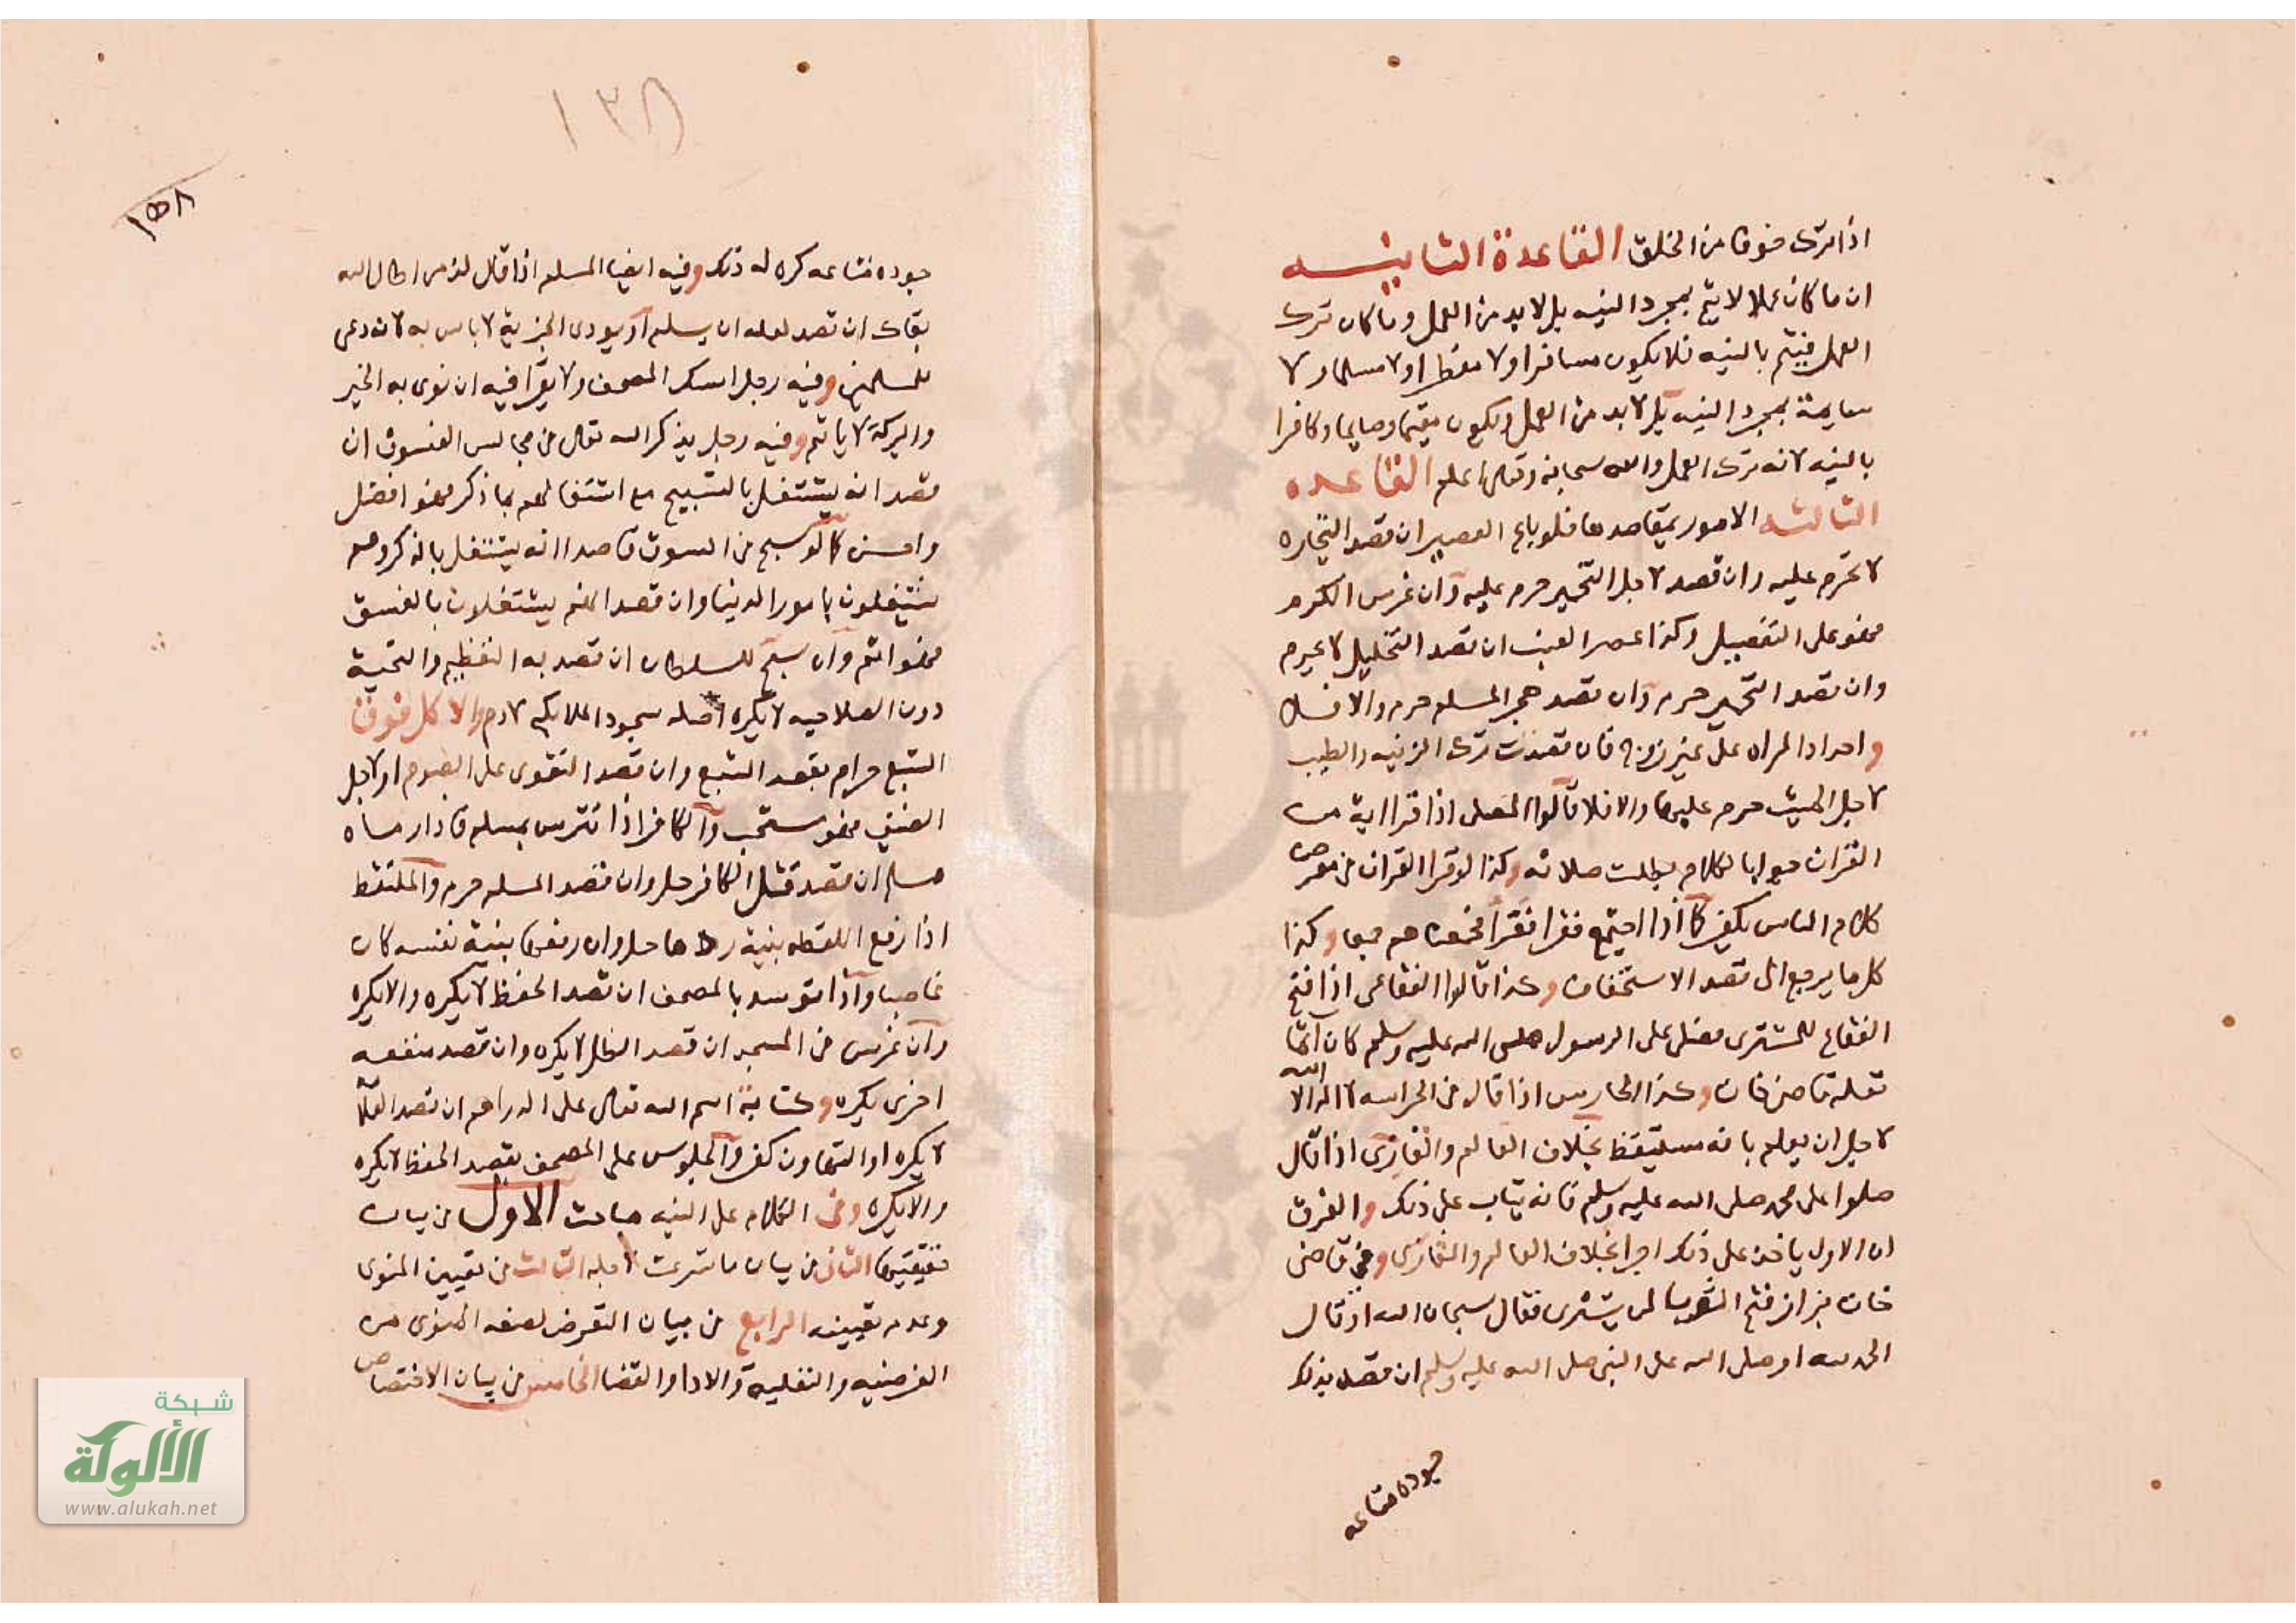 اذا ترك خوفا من الخلق القاعدة الثانيه
ان ما كان عملا لا يتم بمجرد النيه بل لا بد من العمل وما كان ترك
العمل فيتم بالنيه فلا يكون مسافرا ولا مفطرا ولا مسلما ولا
سايمة بمجرد النيه بل لا بد من العمل ويكون مقيما وصايما وكافرا
بالنيه لانه ترك العمل والله سبحانه وتعالى اعلم القاعده
الثالثه الامور بمقاصدها فلو باع العصير ان قصد التجاره
لا يحرم عليه وان قصد لاجل التخمير حرم عليه وان غرس الكرم
فهو على التفصيل وكذا عصر العنب ان قصد التخليل لا يحرم
وان قصد التخمير حرم وان قصد هجر المسلم حرم والا فلا
واحداد المراه على غير زوج فان قصدت ترك الزينه والطيب
لاجل الميت حرم عليها والا فلا قالوا المصلى اذا قرا اية من
القران جوابا لكلام بطلت صلاته وكذا لو قرا القران في معرض
كلام الناس يكفر كما اذا اجتمع فقرا فجمعناهم جمعا وكذا
كل ما يرجع الى قصد الاستخفاف وكذا قالوا الفقاعى اذا فتح
الفقاع للمشترى فصلى على الرسول صلى الله عليه وسلم كان آثما
نقله قاضى خان وكذا الحارس اذا قال في الحراسه لا اله الا الله
لاجل ان يعلم بانه مستيقظ بخلاف العالم والغازى اذا قال
صلوا على محمد صلى الله عليه وسلم فانه يثاب على ذلك والفرق
ان الاول ياخذ على ذلك اجرا بخلاف العالم والغازى وفي قاضى
خان بزاز فتح الثوب لمن يشترى فقال سبحان الله او قال
الحمد لله او صلى الله على النبى صلى الله عليه وسلم ان قصد بذلك
جوده متاعه
١٣٨
١٥٨
جوده متاعه كره له ذلك وفيه ايضا المسلم اذا قال لذمى اطال الله
بقاك ان قصد لعله ان يسلم او يودى الجزية لا باس به لانه دعى
للمسلمين وفيه رجل امسك المصحف ولا يقرا فيه ان نوى به الخير
والبركة لا ياثم وفيه رجل يذكر الله تعالى في مجالس الفسوق ان
قصد انه يشتغل بالتسبيح مع اشتغالهم بما ذكر فهو افضل
واحسن كما لو سبح في السوق قاصدا انه يشتغل بالذكر وهم
يشتغلون بامور الدنيا وان قصد انهم يشتغلون بالفسق
فهو اثم وان سبح للسلطان ان قصد به التعظيم والتحية
دون الصلاحيه لا يكره اصله سجود الملايكه لادم والاكل فوق
الشبع حرام بقصد الشبع وان قصد التقوى على الصوم او لاجل
الضيف فهو مستحب والكافر اذا تترس بمسلم فاذا رماه
مسلم ان قصد قتل الكافر حل وان قصد المسلم حرم والملتقط
اذا رفع اللقطه بنية ردها حل وان رفعها بنية نفسه كان
غاصبا واذا توسد بالمصحف ان قصد الحفظ لا يكره والا يكره
وان غرس في المسجد ان قصد الظل لا يكره وان قصد منفعه
اخرى يكره وكتابة اسم الله تعالى على الدراهم ان قصد العلامة
لا يكره او التهاون كفر والجلوس على المصحف بقصد الحفظ لا يكره
والا يكره وفى الكلام على النيه مباحث الاول في بيان
حقيقتها الثانى في بيان ما شرعت لاجله الثالث في تعيين المنوى
وعدم تعيينه الرابع في بيان التعرض لصفه المنوى من
الفرضيه والنفليه والادا والقضا الخامس في بيان الاختصاص
شبكة
الألوكة
www.alukah.net